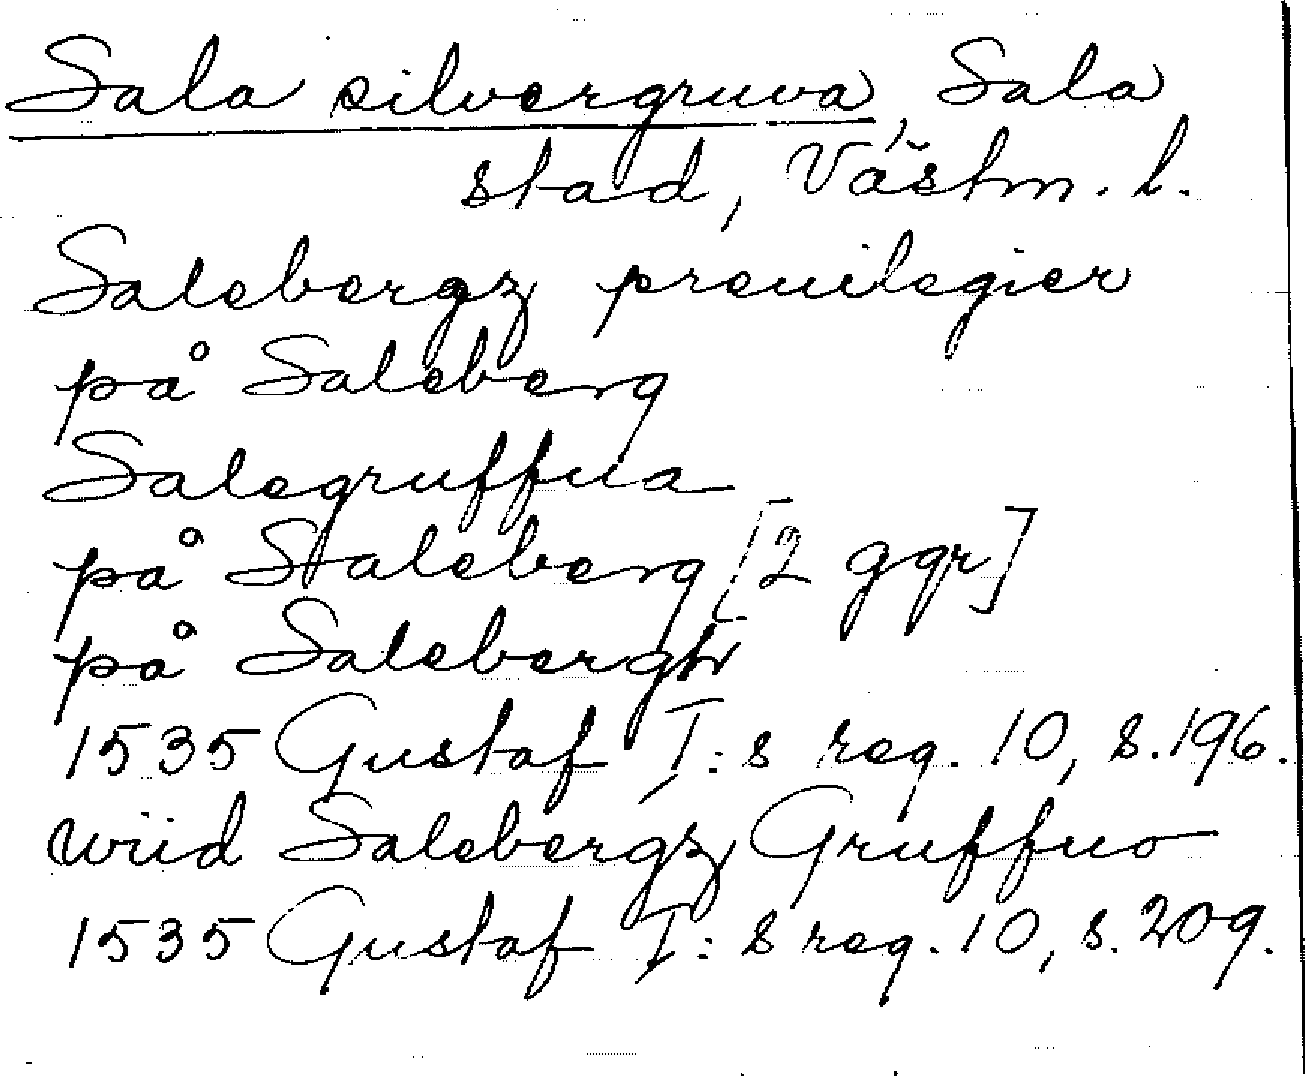 Sala silvergruva, Sala
stad, Västm. l.
Salebergz preuilegier
på Saleberg
Salegruffua
på Saleberg [2 ggr]
på Salebergh
1535 Gustaf I:s reg. 10, s. 196.
wiid Salebergz Gruffuo
1535 Gustaf I:s reg. 10, s. 209.